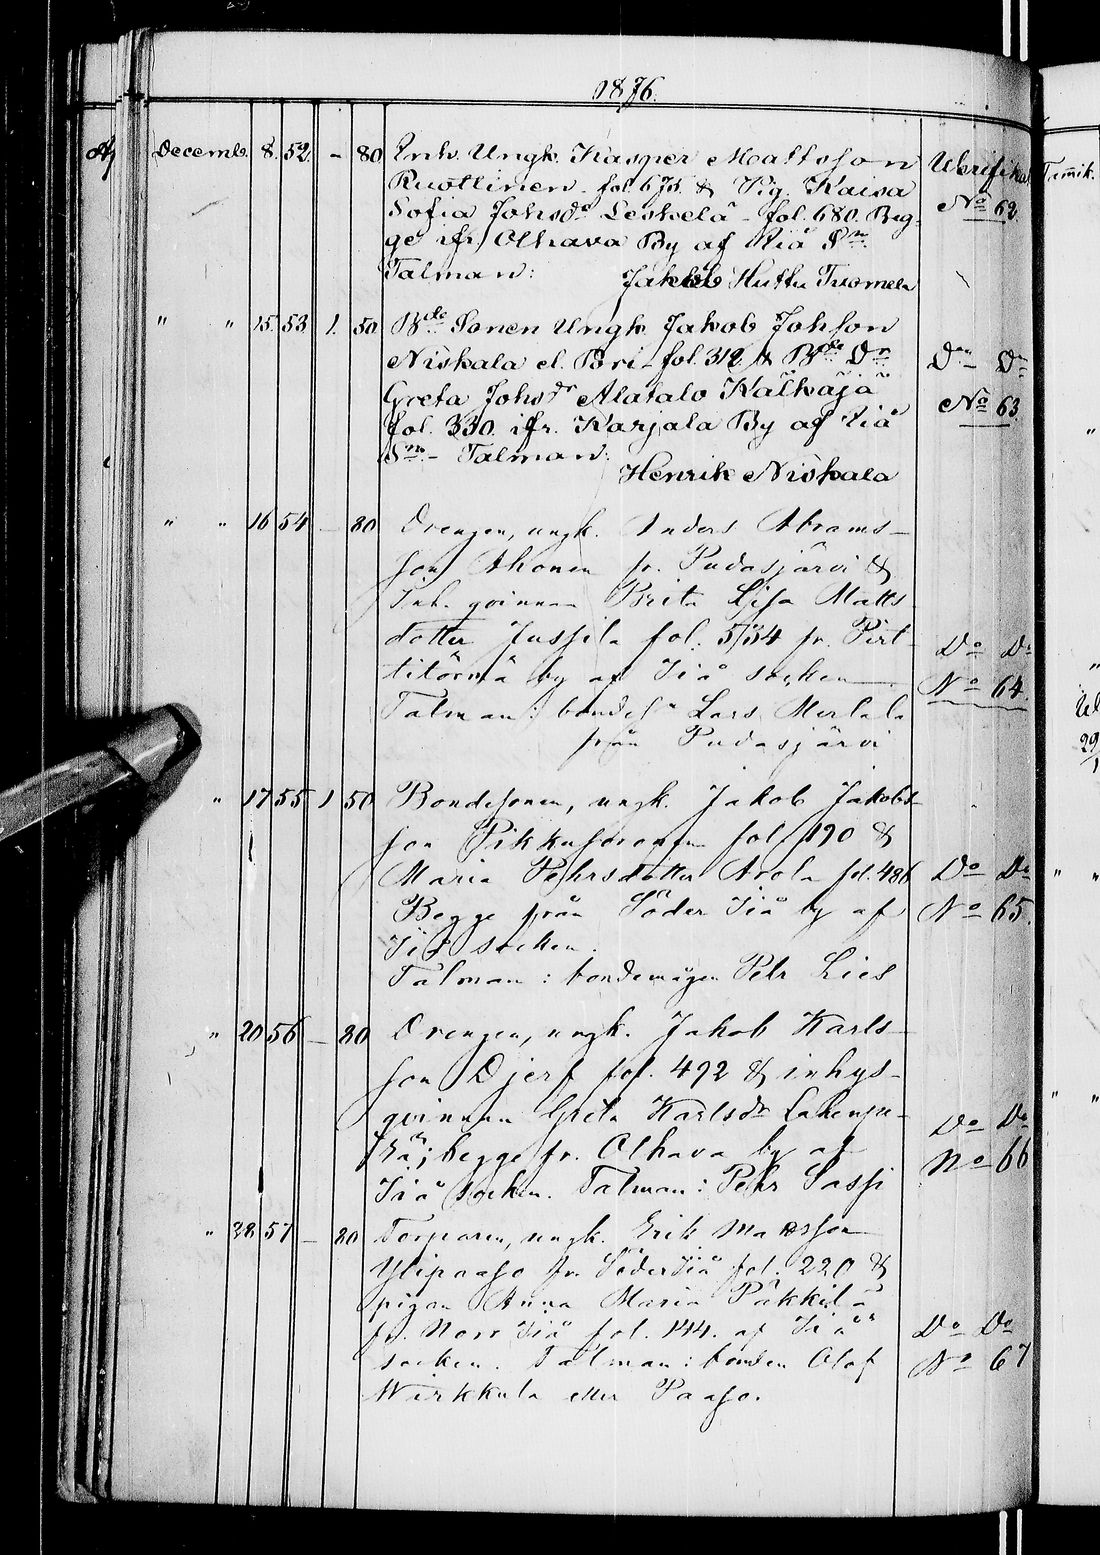 1876.
Decemb. 8. 52. - 80 Inh. Ungk. Kasper Mattsson Verifikat
Ruottinen fol. 675. & Pig. Kaisa
Sofia Johsdr Leskelä - fol. 680. Beg- No 62.
ge ifr. Olhava By af Iiå Sn.
Talman:
Jakob Huttu Tuomela
" " 15. 53 1. 50 Bde Sonen Ungk. Jakob Johson
Niskala el. Bri - fol. 312 & Bde Dr Do Do
Greta Johsdr Alatalo Kälkäjä
fol. 330. ifr. Karjala By af Iiå No 63.
Sn. - Talman:
Henrik Niskala
" " 16 54 - 80 Drengen, ungk. Anders Abrams-
son Ahonen fr. Pudasjärvi &
Inh. qvinnan Brita Lisa Matts-
dotter Jussila fol. 534 fr. Pirt- Do Do
titörmä by af Iiå socken No 64.
Talman: bonden Lars Merlala
från Pudasjärvi
" 17 55 1 50 Bondesonen, ungk. Jakob Jakobs-
son fol. 190 &
Maria Pehrsdotter Arola fol. 486 Do Do
Begge från Söder Iiå by af No 65.
Iiå socken.
Talman: bondemågen Pehr Lies
" 20 56 - 80 Drengen, ungk. Jakob Karls-
son Djerf fol. 492 & inhys-
qvinnan Greta Karlsdr Do Do
begge fr. Olhava by af No 66
Iiå socken. Talman: Pehr Sassi
" 28 57 - 80 Torparen, ungk. Erik Matsson
Ylipaaso fr. Söder Iiå fol. 220 &
pigan Anna Maria Päkkilä
fr. Norr Iiå fol. 144. af Iiå Do Do
socken. Talman: bonden Olof No 67
Wirkkula eller Paaso.